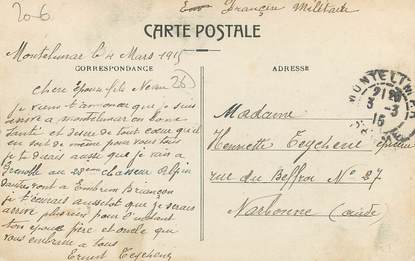 20-6
En Franchise Militaire
CARTE POSTALE
CORRESPONDANCE
ADRESSE
Montelimar le 4 Mars 1915
Chère Epouse fils Neau
26
je viens t'annoncer que je suis
arrivé a montelimar en bone
santé et desire de tout cœur qu'il
en soit de même pour vous tous
je te dirais aussi que je vais a
Grenoble au 28eme chasseur Alpin
dautres vont a Embrun Briançon
je t'écrirais aussitot que je serais
arrivé plus rien pour l'instant
ton époux père et oncle qui
vous embrasse a tous
Ernest Teychené
MONTELIMAR
3 -3
15
Madame
Henriette Teychené
rue du Beffroi No 27
Narbonne (Aude)